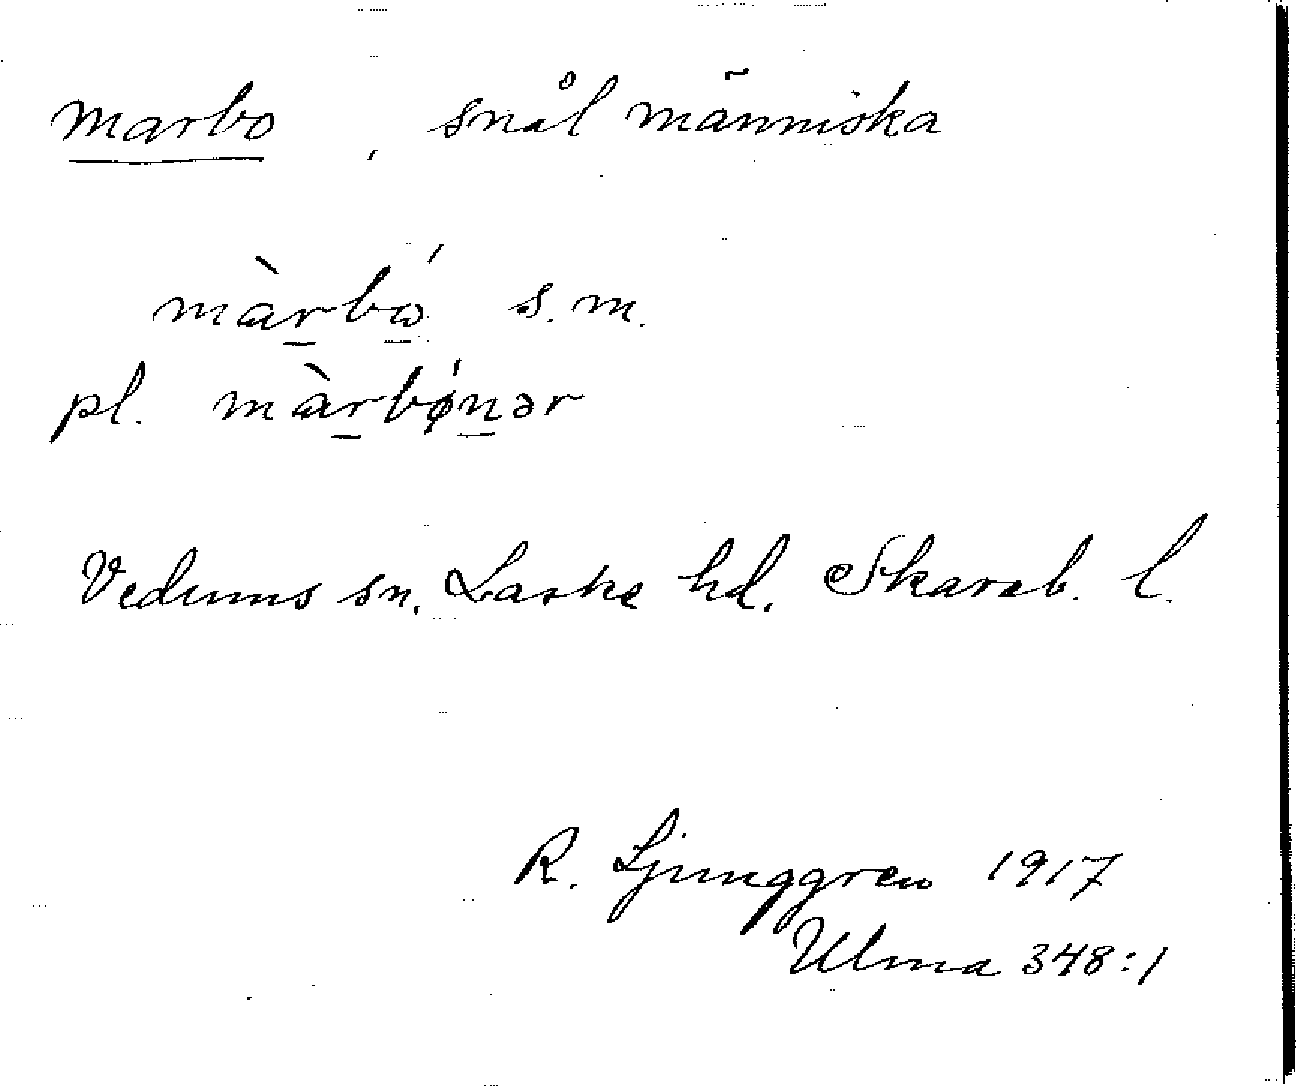 marbo, snål människa
màrbώ s.m.
pl. màrbǿnər
Vedums sn. Laske hd. Skarab. l.
R. Ljunggren 1917
Ulma 348:1